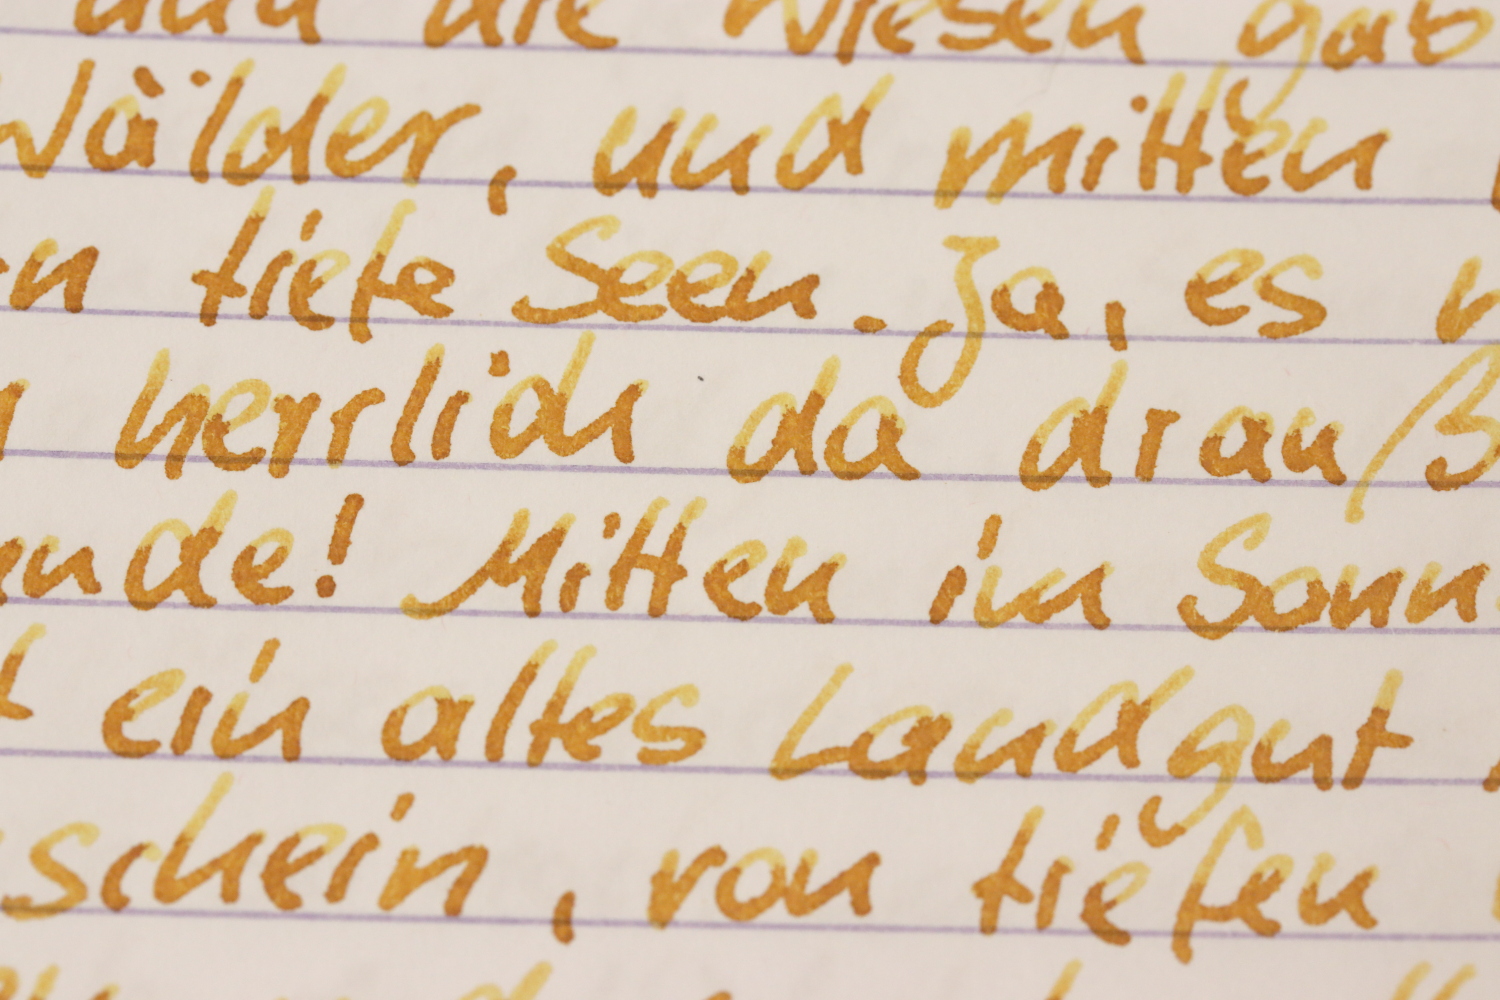 und die Wiesen gab
Wälder, und mitten
tiefe Seen. Ja, es
herrlich da drauß
unde! Mitten im Sonn
ein altes Landgut
schein, von tiefen